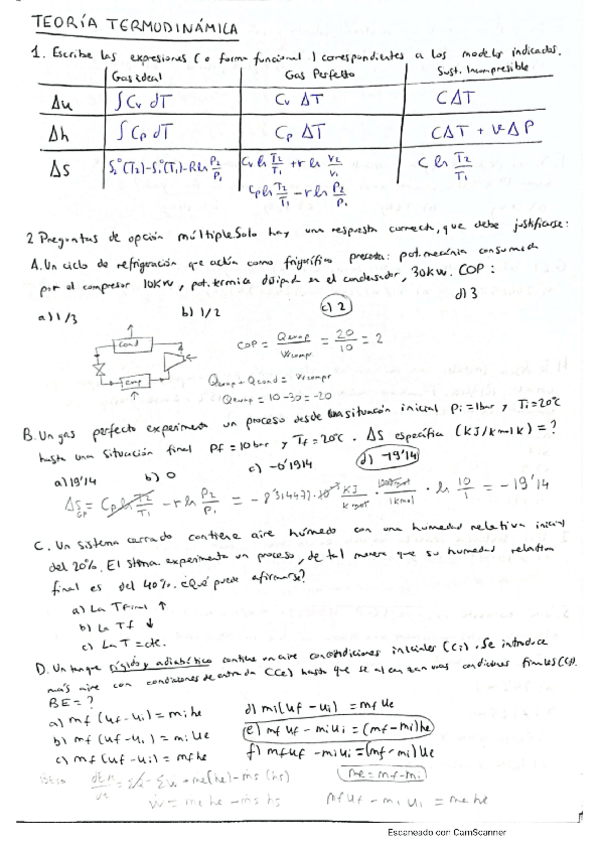 TEORÍA TERMODINÁMICA
1. Escribe las expresiones (o forma funcional) correspondientes a los modelos indicados.
Gas ideal Gas Perfecto Sust. Incompresible
Δu ∫Cv dT Cv ΔT CΔT
Δh ∫Cp dT Cp ΔT CΔT + vΔP
Δs S₂°(T₂)-S₁°(T₁)-R ln P₂/P₁ Cv ln T₂/T₁ + r ln v₂/v₁ C ln T₂/T₁
Cp ln T₂/T₁ - r ln P₂/P₁
2 Preguntas de opción múltiple. Solo hay una respuesta correcta, que debe justificarse:
A. Un ciclo de refrigeración que actúa como frigorífico presenta: pot. mecánica consumida
por el compresor 10kW, pot. termica disipada en el condensador, 30kW. COP:
a) 1/3 b) 1/2 c) 2 d) 3
cond
evap
COP = Qevap/Wcompr = 20/10 = 2
Qevap + Qcond = Wcompr
Qevap = 10-30 = -20
B. Un gas perfecto experimenta un proceso desde una situación inicial Pi = 1bar y Ti = 20°C
hasta una situación final Pf = 10 bar y Tf = 20°C. ΔS específica (kJ/kmolK) = ?
a) 19'14 b) 0 c) -0'1914 d) -19'14
ln 10/1 = -19'14
C. Un sistema cerrado contiene aire húmedo con una humedad relativa inicial
del 20%. El stma. experimenta un proceso, de tal manera que su humedad relativa
final es del 40%. ¿Qué puede afirmarse?
a) La Tfinal ↑
b) La Tf ↓
c) La T = cte.
D. Un tanque rígido y adiabático contiene un aire con condiciones iniciales (Ci). Se introduce
más aire con condiciones de entrada (Ce) hasta que se alcanzan unas condiciones finales (Cf).
BE = ?
a) mf (uf - ui) = mi he d) mi (uf - ui) = mf ue
b) mf (uf - ui) = mi ue e) mf uf - mi ui = (mf - mi) he
c) mf (uf - ui) = mf he f) mf uf - mi ui = (mf - mi) ue
me = mf - mi
mf uf - mi ui = me he
Escaneado con CamScanner